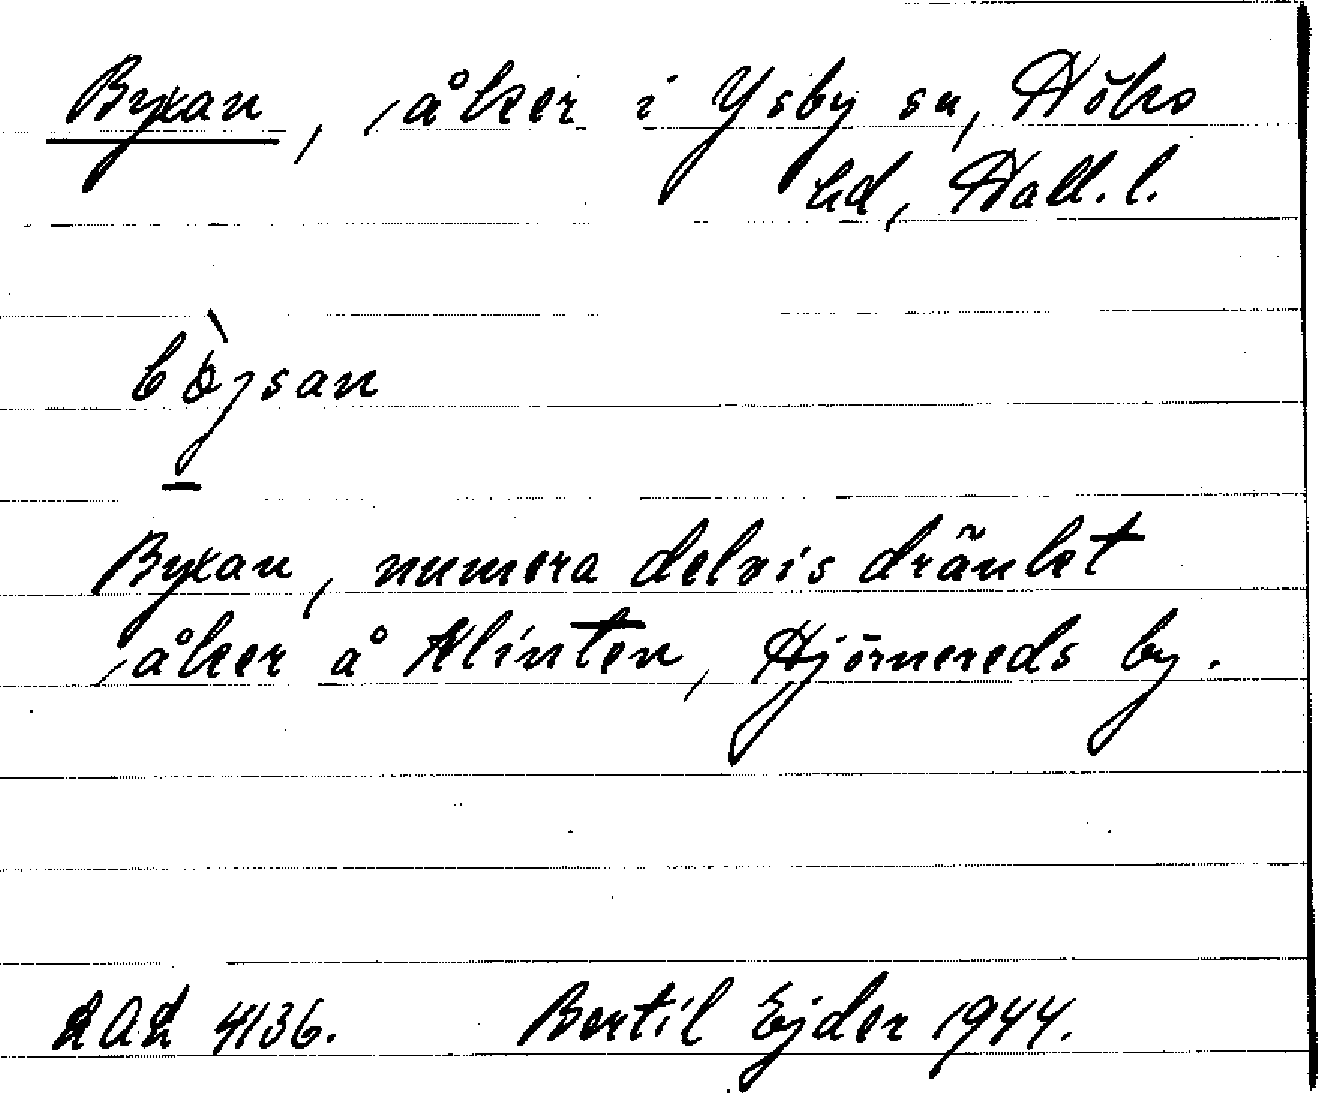 Byxan, åker i Ysby sn, Höks
hd, Hall. l.
Byxan, numera delvis dränkt
åker å Klinten, Hjörnereds by.
LAL 4136. Bertil Ejder 1944.